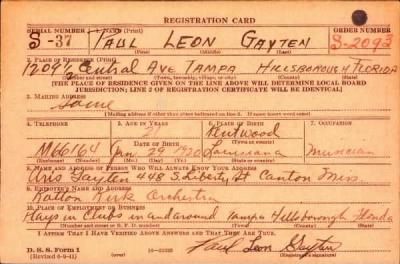 REGISTRATION CARD
SERIAL NUMBER 1. NAME (Print) ORDER NUMBER
S-37 PAUL LEON GAYTEN S-2093
(First) (Middle) (Last)
2. PLACE OF RESIDENCE (Print)
Central AVE TAMPA HILLSBOROUGH FLORIDA
(Number and street) (Town, township, village, or city) (County) (State)
[THE PLACE OF RESIDENCE GIVEN ON THE LINE ABOVE WILL DETERMINE LOCAL BOARD
JURISDICTION; LINE 2 OF REGISTRATION CERTIFICATE WILL BE IDENTICAL]
3. MAILING ADDRESS
Same
[Mailing address if other than place indicated on line 2. If same insert word same]
4. TELEPHONE 5. AGE IN YEARS 6. PLACE OF BIRTH
21 Kentwood
DATE OF BIRTH
M66164 Jan 29 1920 Louisiana Musician
7. NAME AND ADDRESS OF PERSON WHO WILL ALWAYS KNOW YOUR ADDRESS
Gayten 448 S. Liberty St Canton Miss.
8. EMPLOYER'S NAME AND ADDRESS
Kirk Orchestra
9. PLACE OF EMPLOYMENT OR BUSINESS
Plays in Clubs in and around Tampa Hillsborough Florida
(Number and street or R. F. D. number) (Town) (County) (State)
I AFFIRM THAT I HAVE VERIFIED ABOVE ANSWERS AND THAT THEY ARE TRUE.
D. S. S. Form 1
Paul Leon Gayten